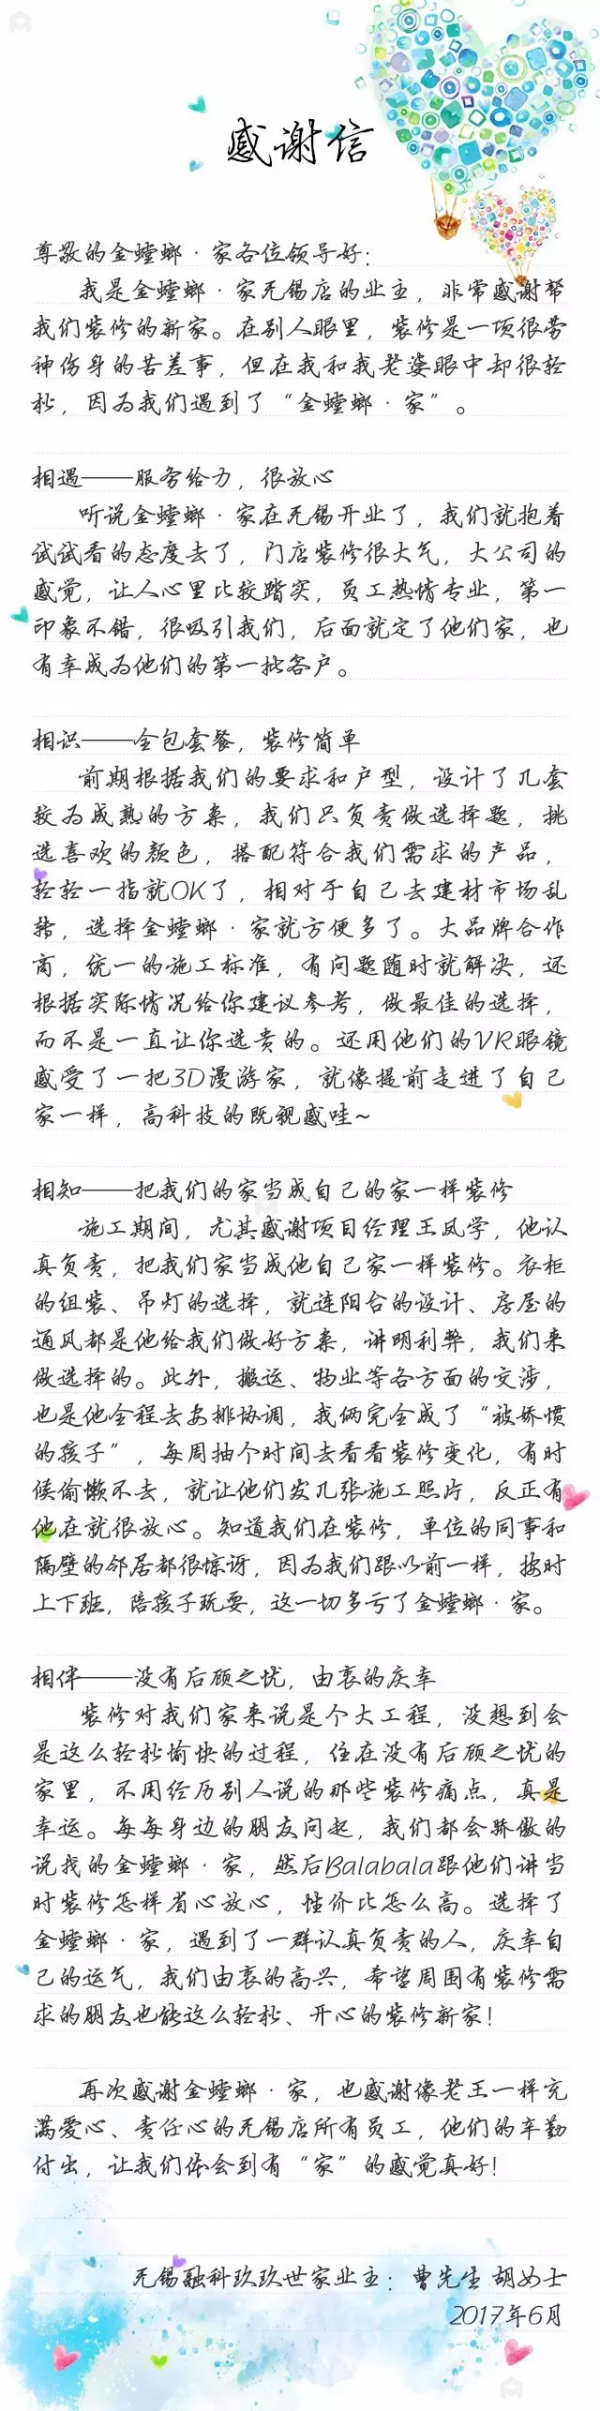 感谢信
尊敬的金螳螂·家各位领导好：
我是金螳螂·家无锡店的业主，非常感谢帮
我们装修的新家。在别人眼里，装修是一项很劳
神伤身的苦差事，但在我和我老婆眼中却很轻
松，因为我们遇到了“金螳螂·家”。
相遇——服务给力，很放心
听说金螳螂·家在无锡开业了，我们就抱着
试试看的态度去了，门店装修很大气，大公司的
感觉，让人心里比较踏实，员工热情专业，第一
印象不错，很吸引我们，后面就定了他们家，也
有幸成为他们的第一批客户。
相识——全包套餐，装修简单
前期根据我们的要求和户型，设计了几套
较为成熟的方案，我们只负责做选择题，挑
选喜欢的颜色，搭配符合我们需求的产品，
轻轻一指就OK了，相对于自己去建材市场乱
转，选择金螳螂·家就方便多了。大品牌合作
商，统一的施工标准，有问题随时就解决，还
根据实际情况给你建议参考，做最佳的选择，
而不是一直让你选贵的。还用他们的VR眼镜
感受了一把3D漫游家，就像提前走进了自己
家一样，高科技的既视感哇~
相知——把我们的家当成自己的家一样装修
施工期间，尤其感谢项目经理王凤学，他认
真负责，把我们家当成他自己家一样装修。衣柜
的组装、吊灯的选择，就连阳台的设计、房屋的
通风都是他给我们做好方案，讲明利弊，我们来
做选择的。此外，搬运、物业等各方面的交涉，
也是他全程去安排协调，我俩完全成了“被娇惯
的孩子”，每周抽个时间去看看装修变化，有时
候偷懒不去，就让他们发几张施工照片，反正有
他在就很放心。知道我们在装修，单位的同事和
隔壁的邻居都很惊讶，因为我们跟以前一样，按时
上下班，陪孩子玩耍，这一切多亏了金螳螂·家。
相伴——没有后顾之忧，由衷的庆幸
装修对我们家来说是个大工程，没想到会
是这么轻松愉快的过程，住在没有后顾之忧的
家里，不用经历别人说的那些装修痛点，真是
幸运。每每身边的朋友问起，我们都会骄傲的
说找的金螳螂·家，然后Balabala跟他们讲当
时装修怎样省心放心，性价比怎么高。选择了
金螳螂·家，遇到了一群认真负责的人，庆幸自
己的运气，我们由衷的高兴，希望周围有装修需
求的朋友也能这么轻松、开心的装修新家！
再次感谢金螳螂·家，也感谢像老王一样充
满爱心、责任心的无锡店所有员工，他们的辛勤
付出，让我们体会到有“家”的感觉真好！
无锡融科玖玖世家业主：曹先生 胡女士
2017年6月